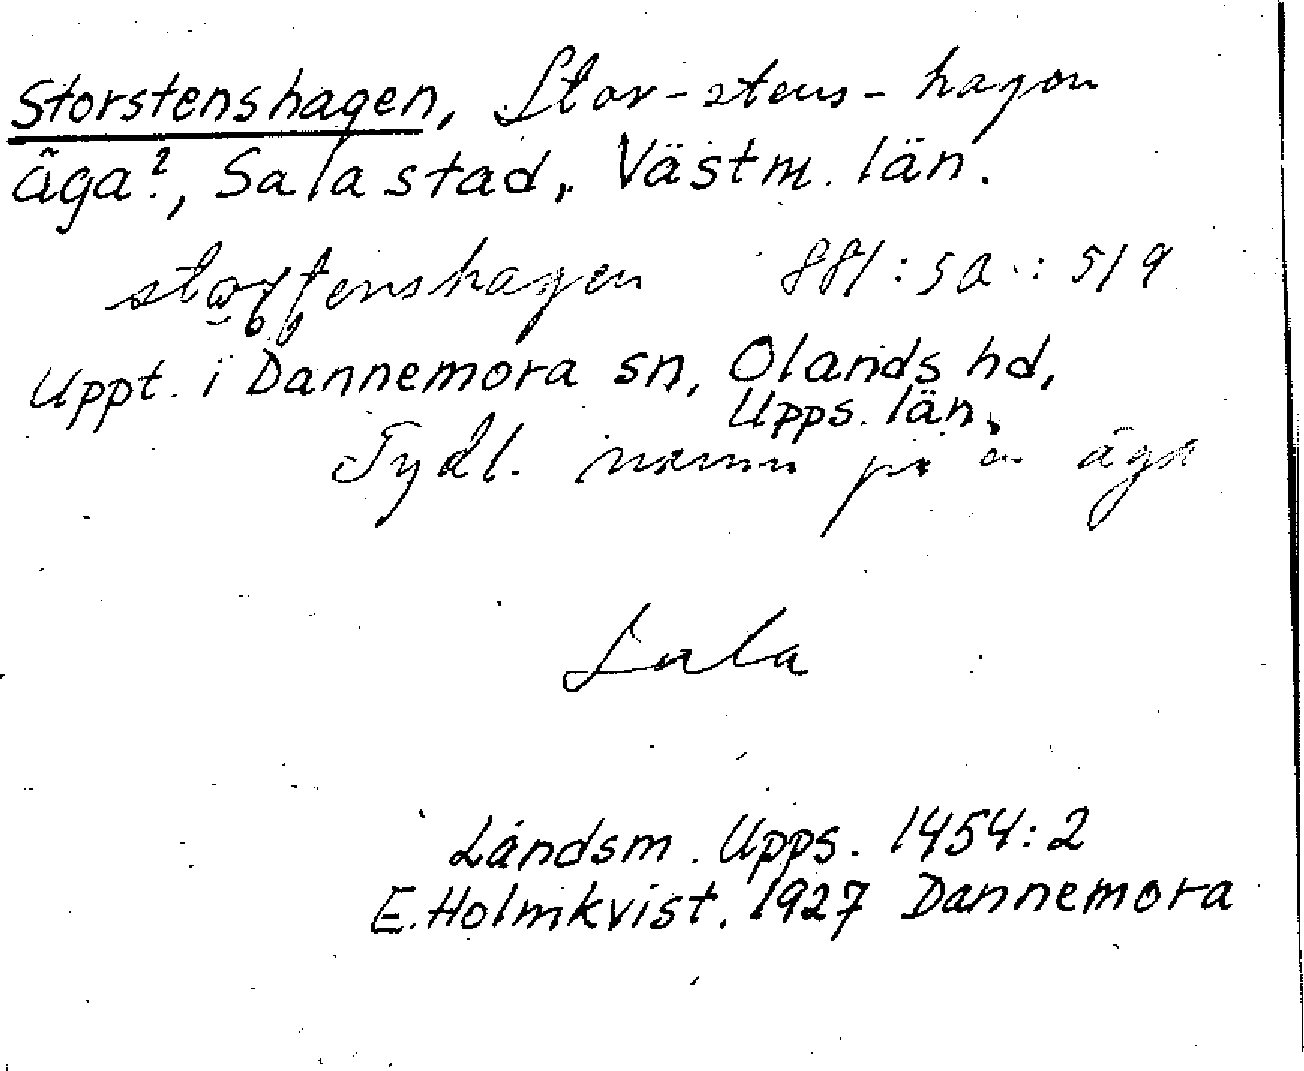 Storstenshagen, Stor-stens-hagen
äga?, Sala stad, Västm. län.
881:5a : 519
Uppt. i Dannemora sn, Olands hd,
Upps. län.
Tydl. namn på en äga
Sala
Landsm. Upps. 1454:2
E. Holmkvist. 1927 Dannemora